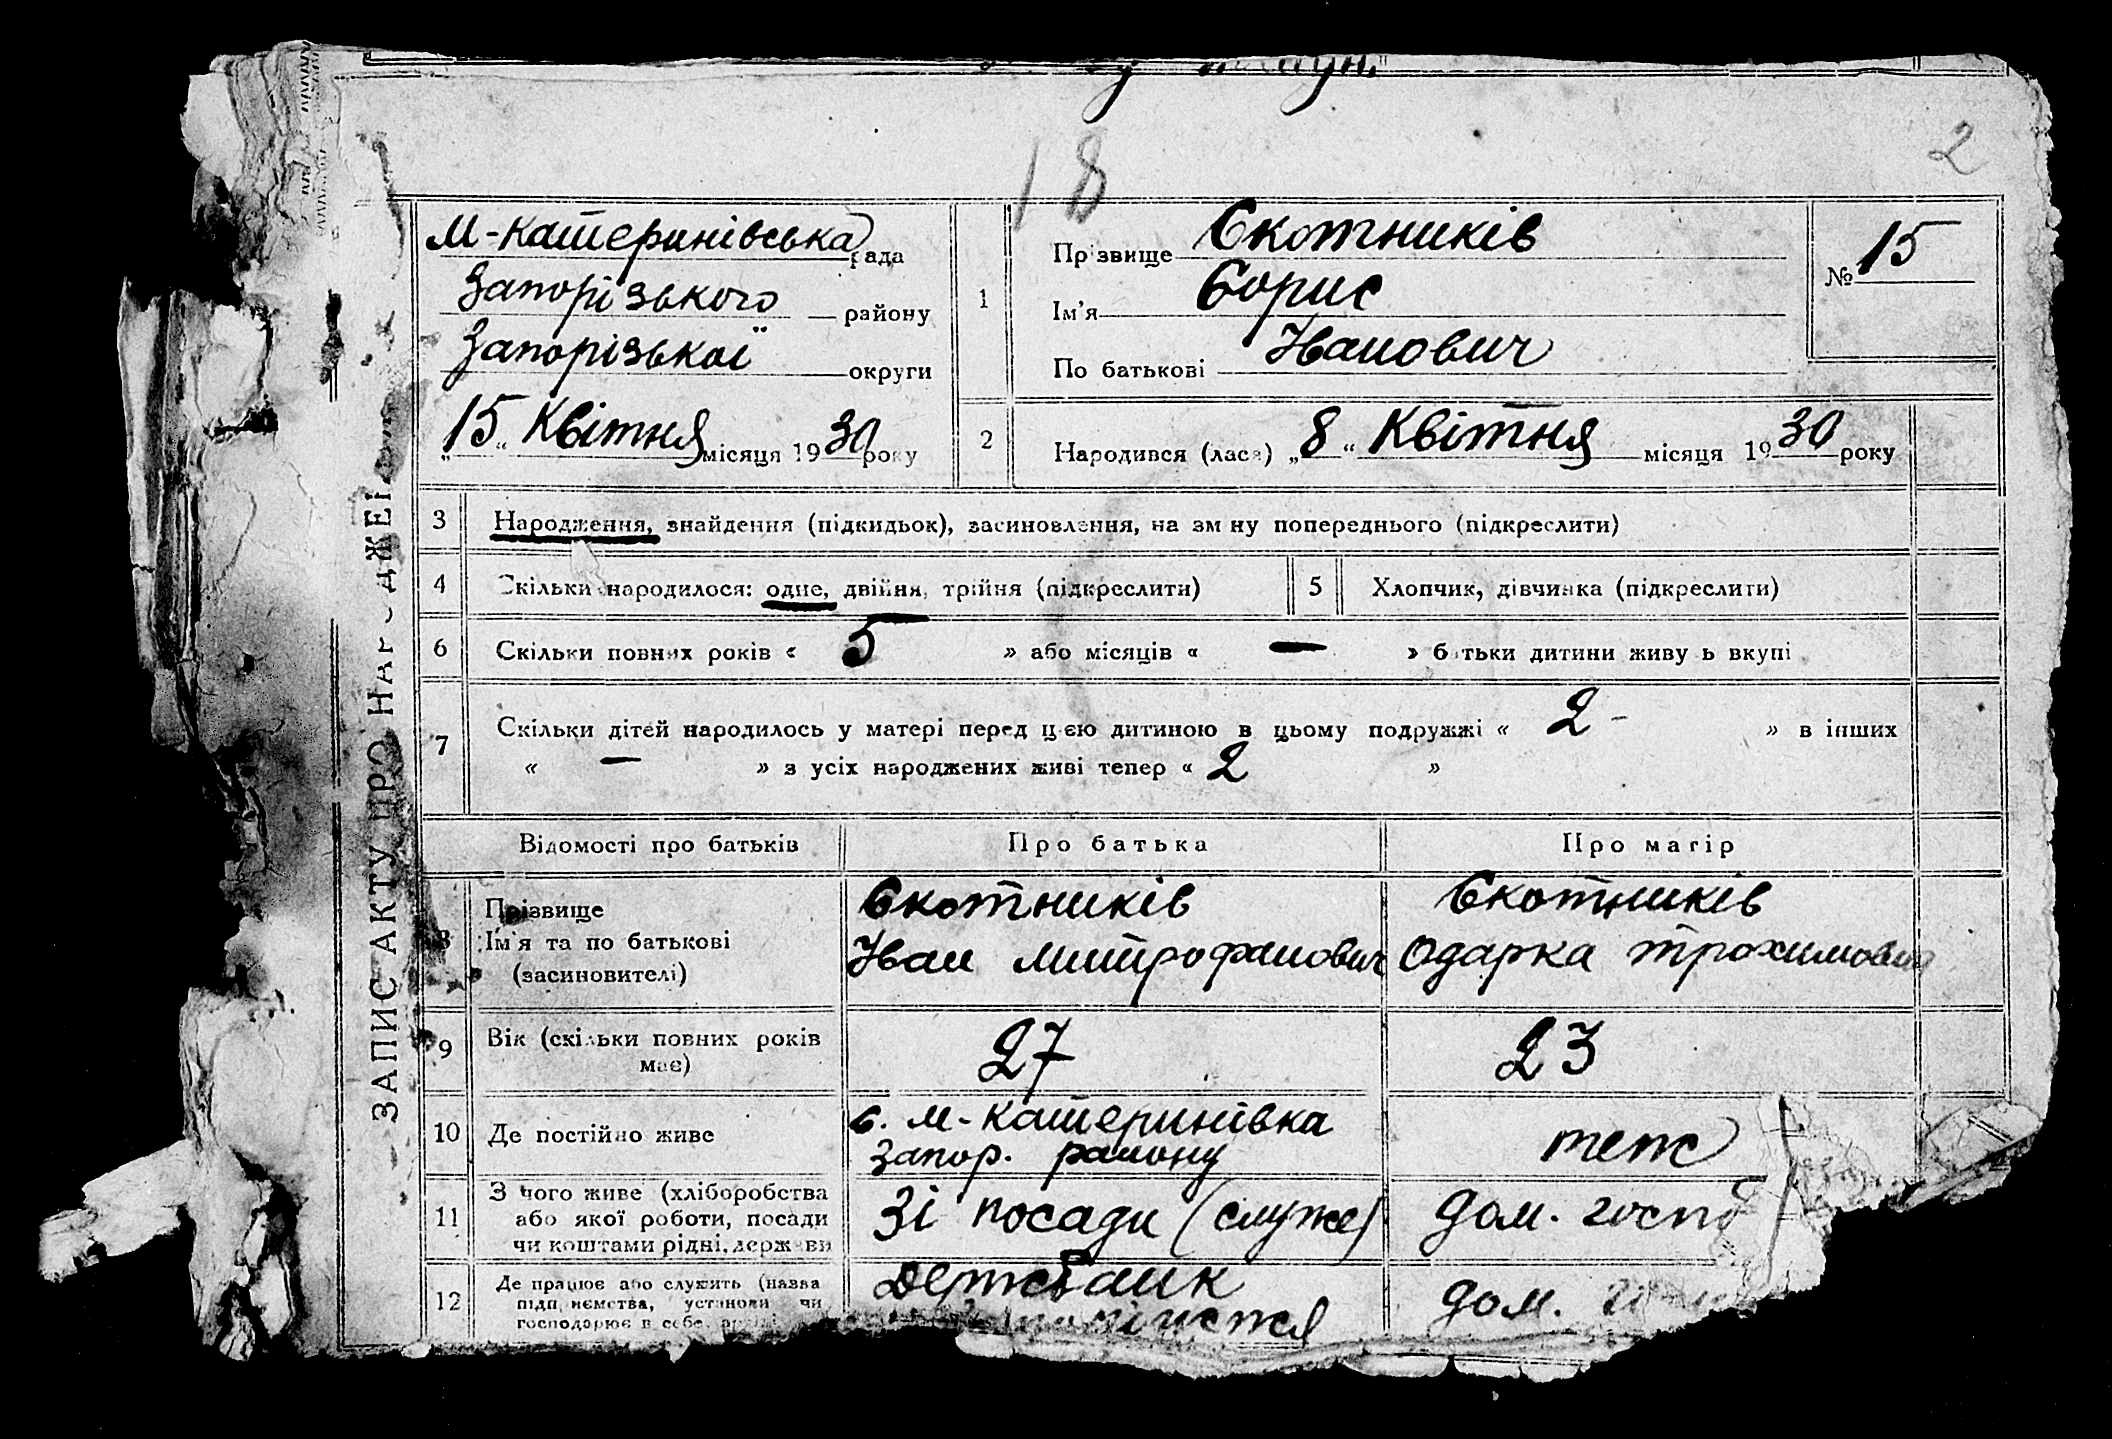 18
2
ЗАПИС АКТУ ПРО НАРОДЖЕН
М-Катеринівська рада
Запорізького району
Запорізької округи
„15“ Квітня місяця 1930 року
1
Прізвище Скотників
Ім'я Борис
По батькові Іванович
№ 15
2
Народився (лася) „8“ Квітня місяця 1930 року
3 Народження, знайдення (підкидьок), засиновлення, на зміну попереднього (підкреслити)
4 Скільки народилося: одне, двійня, трійня (підкреслити) 5 Хлопчик, дівчинка (підкреслити)
6 Скільки повних років « 5 » або місяців « — » батьки дитини живуть вкупі
7 Скільки дітей народилось у матері перед цією дитиною в цьому подружжі « 2 - » в інших
« — » з усіх народжених живі тепер « 2 »
Відомості про батьків Про батька Про матір
8 Прізвище Скотників Скотників
Ім'я та по батькові Іван Митрофанович Одарка Трохимовна
(засиновителі)
9 Вік (скільки повних років має) 27 23
10 Де постійно живе с. М-Катеринівка теж
Запор. району
11 З чого живе (хліборобства Зі посади (служе) Дом. госпо
або якої роботи, посади
чи коштами рідні, держави
12 Де працює або служить (назва Держбанк Дом.
підприємства, установи чи
господарює в себе,